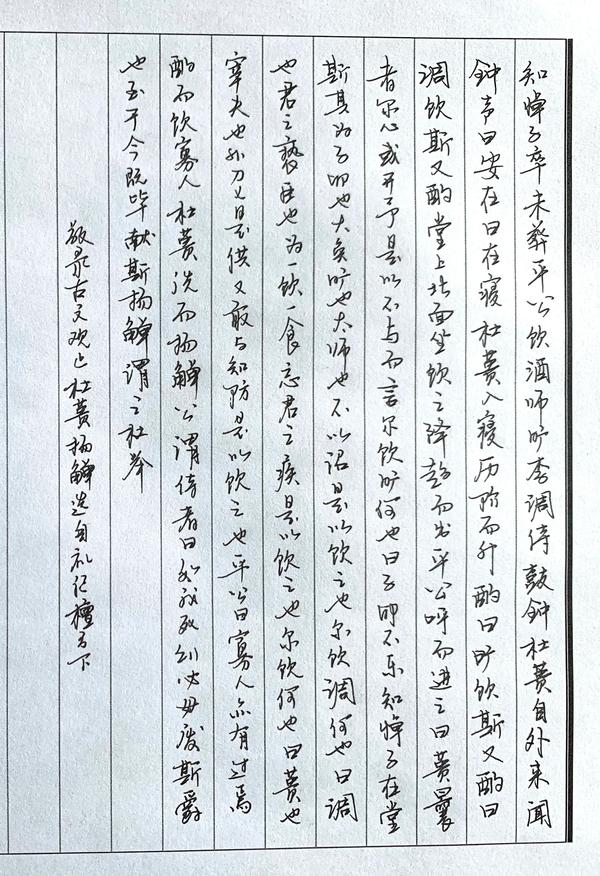 知悼子卒未葬平公饮酒师旷李调侍鼓钟杜蒉自外来闻
钟声曰安在曰在寝杜蒉入寝历阶而升酌曰旷饮斯又酌曰
调饮斯又酌堂上北面坐饮之降趋而出平公呼而进之曰蒉曩
者尔心或开予是以不与而言尔饮旷何也曰子卯不乐知悼子在堂
斯其为子卯也大矣旷也太师也不以诏是以饮之也尔饮调何也曰调
也君之亵臣也为一饮一食忘君之疾是以饮之也尔饮何也曰蒉也
宰夫也非刀匕是供又敢与知防是以饮之也平公曰寡人亦有过焉
酌而饮寡人杜蒉洗而扬觯公谓侍者曰如我死则必毋废斯爵
也至于今既毕献斯扬觯谓之杜举
敬录古文观止杜蒉扬觯选自礼记檀弓下